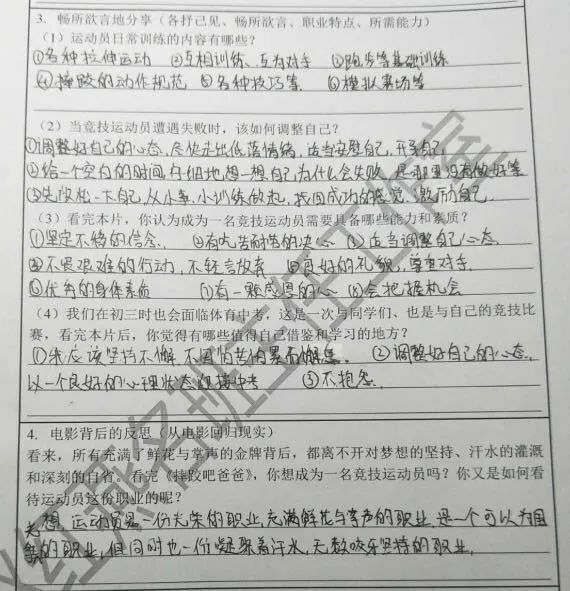 3. 畅所欲言地分享（各抒己见、畅所欲言、职业特点、所需能力）
（1）运动员日常训练的内容有哪些？
①各种拉伸运动 ②互相训练、互为对手 ③跑步等基础训练
④摔跤的动作规范 ⑤各种技巧等 ⑥模拟赛场等
（2）当竞技运动员遭遇失败时，该如何调整自己？
①调整好自己的心态，尽快走出低落情绪，适当安慰自己，开导自己
②给一个空白的时间仔细地想一想自己为什么会失败，是那里没有做好等
③失败松一大自己，从小事、小训练做起，找回成功的感觉，激励自己
（3）看完本片，你认为成为一名竞技运动员需要具备哪些能力和素质？
①坚定不移的信念 ②有吃苦耐劳的决心 ③适当调整自己心态
④不畏艰难的行动，不轻言放弃 ⑤良好的礼貌，尊重对手
⑥优秀的身体素质 ⑦有一颗感恩的心 ⑧会把握机会
（4）我们在初三时也会面临体育中考，这是一次与同学们、也是与自己的竞技比
赛，看完本片后，你觉得有哪些值得自己借鉴和学习的地方？
①我应该坚持不懈，不因为苦怕累而懈怠 ②调整好自己的心态，
以一个良好的心理状态迎接中考 ③不抱怨
4. 电影背后的反思（从电影回归现实）
看来，所有充满了鲜花与掌声的金牌背后，都离不开对梦想的坚持、汗水的灌溉
和深刻的自省。看完《摔跤吧爸爸》，你想成为一名竞技运动员吗？你又是如何看
待运动员这份职业的呢？
想，运动员是一份光荣的职业，充满鲜花与掌声的职业，是一个可以为国
的职业，但同时也一份凝聚着汗水，无数咬牙坚持的职业。
红班主任工作室